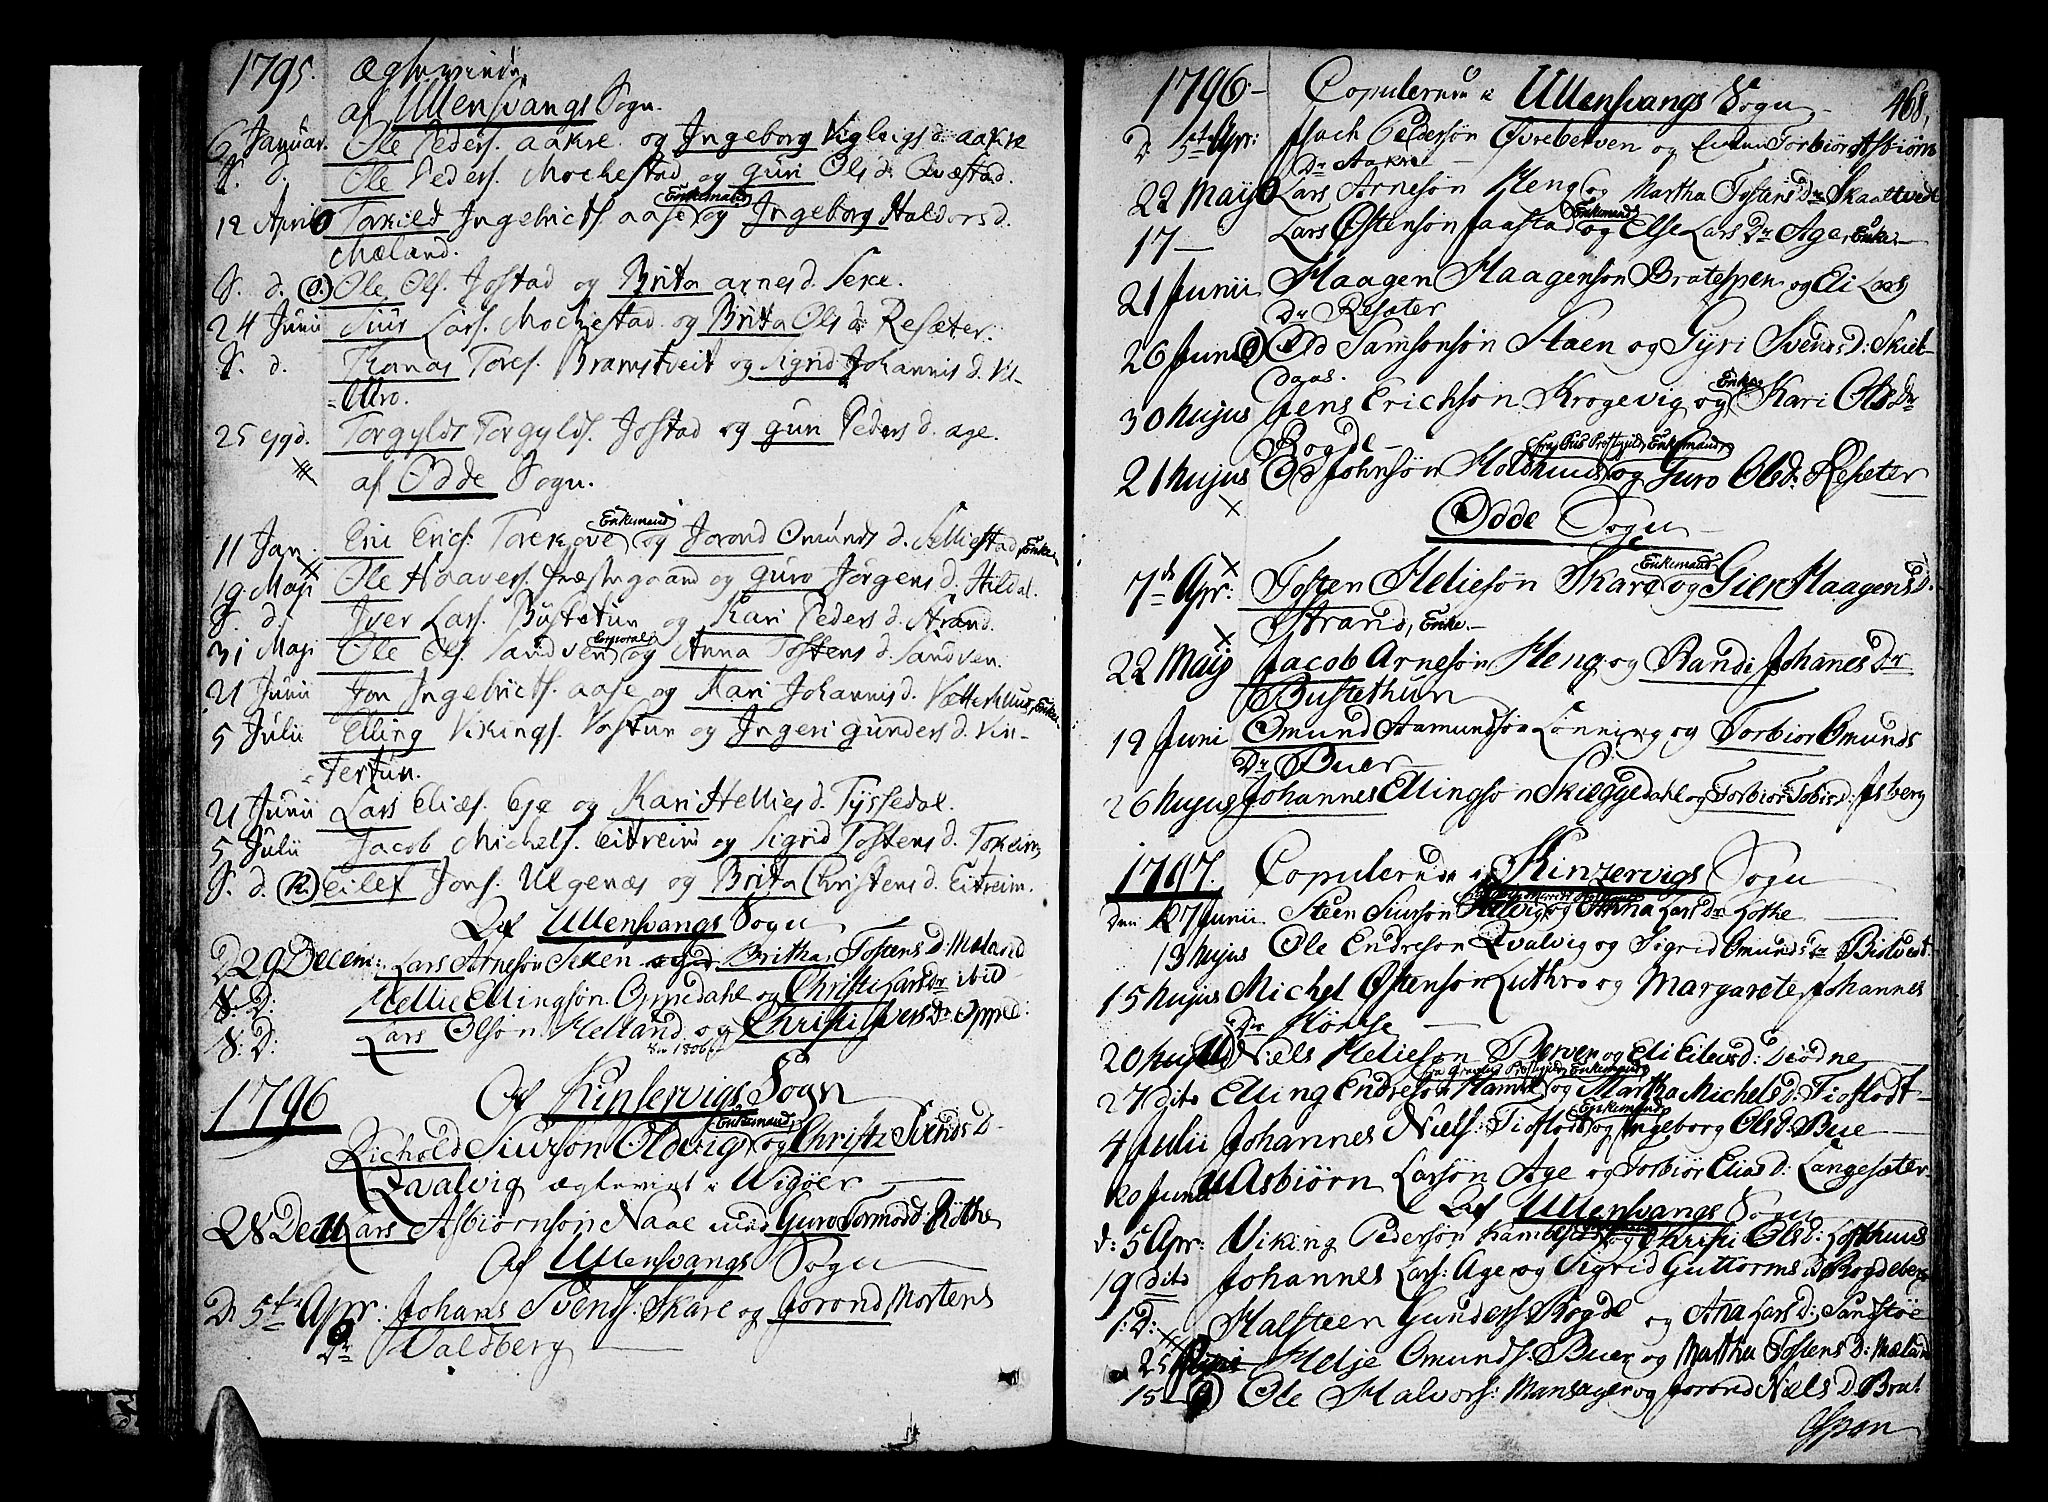 1795.
af Ullensvangs Sogn.
6 Januar. Ole Peders. Aakre og Ingeborg Vigleigs d. Aakre
S. d. Ole Peders. Mochestad og Guri Ols d: Qvæstad.
12 April Torkild Ingebricts. Aase Enkemand og Ingeborg Haldors d.
Mæland.
S. d. Ole Ols. Jostad og Brita Arnes d. Sexe.
24 Junii Siur Lars. Mochestad og Brita Ols d: Resæter.
S. d. Thomas Tores. Bramstveit og Sigrid Johannis d. Vi-
25 Torgylds Torgylds. Jostad og Guri Peders d. Age.
af Odde Sogn.
11 Jan: Eric Erics. Enkemand og Jorond Omunds d. Selliestad, Enke
19 Maji Ole Haavers. Præstegaard og Guro Jørgens d. Hildal.
S. d. Iver Lars. Bustetun og Kari Peders d. Strand.
31 Maji Ole Ols. Sandven Corporal og Anna Tostens d. Sandven.
21 Junii Jon Ingebricts. Aase og Mari Johannis d. Enke
5 Julii Elling Vikings. Vastun og Ingeri Gunders d. Vin-
tertun.
21 Junii Lars Elias. Eje og Kari Hellies d. Tyssedal.
5 Julii Jacob Michels. Eitreim og Sigrid Tostens d. Tokeim
S. d. Eilef Jons. Ulgenæs og Brita Christens d. Eitreim.
Af Ullensvangs Sogn
D 29 Decem: Lars Arnesøn Sexen Britha Tostens D: Mæland
S: D: Hellie Ellingsøn Oppedahl og Christi Lars Dr ibid
S: D: Lars Olsøn Helland og Christi Ivers Dr Opped:
1796 Af Kinservigs Sogn
Richold Siursøn Oldvig Enkemand og Christi Svends D.
Qvalvig ægteviet i Widøer
28 Dec Lars Asbiørnsøn Naae med Guro Tormod D: Røthe
Af Ullensvangs Sogn
D: 5te Apr: Johans Svends: Skare og Jorond Mortens
Dr Valdberg
1796 Copulerede i Ullensvangs Sogn 468,
D 5te Apr: Isach Pedersøn Øvreberven og Torbior Asbiørns
Dr Aakre
22 Maij Lars Arnesøn Heng og Martha Tostens Dr Skaaltvedt
17 Lars Østensøn Jaastad Enkemand og Else Lars Dr Age, Enke
21 Junii Haagen Haagensøn Bratespen og Eli Lars
Dr Resæter
26 Juni Od Samsonsøn Staen og Gyri Svends d: Skiel-
daas.
30 hujus Jens Erichsøn Krogevig og Enke Kari Olsdr
Bogde
21 hujus Od Johnsøn Holdhuus Enkemand og Guro Olsd: Resæter
Odde Sogn
7de Apr: Tosten Heliesøn Skare Enkemand og Giertr Haagens D.
Strand, Enke
22 Maij Jacob Arnesøn Heng og Randi Johanes Dr
Bustethun
19 Juni Omund Aamundsøn Lønning og Torbior Omunds
Dr Buer
26 hujus Johannes Ellingsøn Skieggedahl og Torbior Tobias D: Isberg
1797. Copulerede i Kinzervigs Sogn
Den 27 Junii Steen Siursøn Helvig og Anna Lars Dr Lothe
13 hujus Ole Endresøn Qvalvig og Sigrid Omunds Dr Bistvedt
15 hujus Michel Østensøn Luthro og Margarete Johannes
Dr
20 hujus Niels Heliesøn Berven og Eli Eilevs d: Diødne
27 dito Elling Endresøn Hamre Enkemand og Martha Michels D: Tioflodt
4 Julii Johannes Niels: Tioflodt Enkemand og Ingeborg Olsd: Bue
20 Juni Asbiørn Larsøn Age og Torbiør Elias D: Langesæter
Af Ullensvangs Sogn
d: 5 Apr: Viking Pedersøn og Christi Ols D: Lofthuus
19 dito Johannes Lars: Age og Sigrid Guttorms d: Bogdeberg
1: D: Halsteen Gunders. Bogde og Ana Lars D: Sandstøe
25 Helje Omunds. Buer og Martha Tostens D: Mæland
15 Ole Halvors: Mansager og Jorond Niels D: Brat
Espen